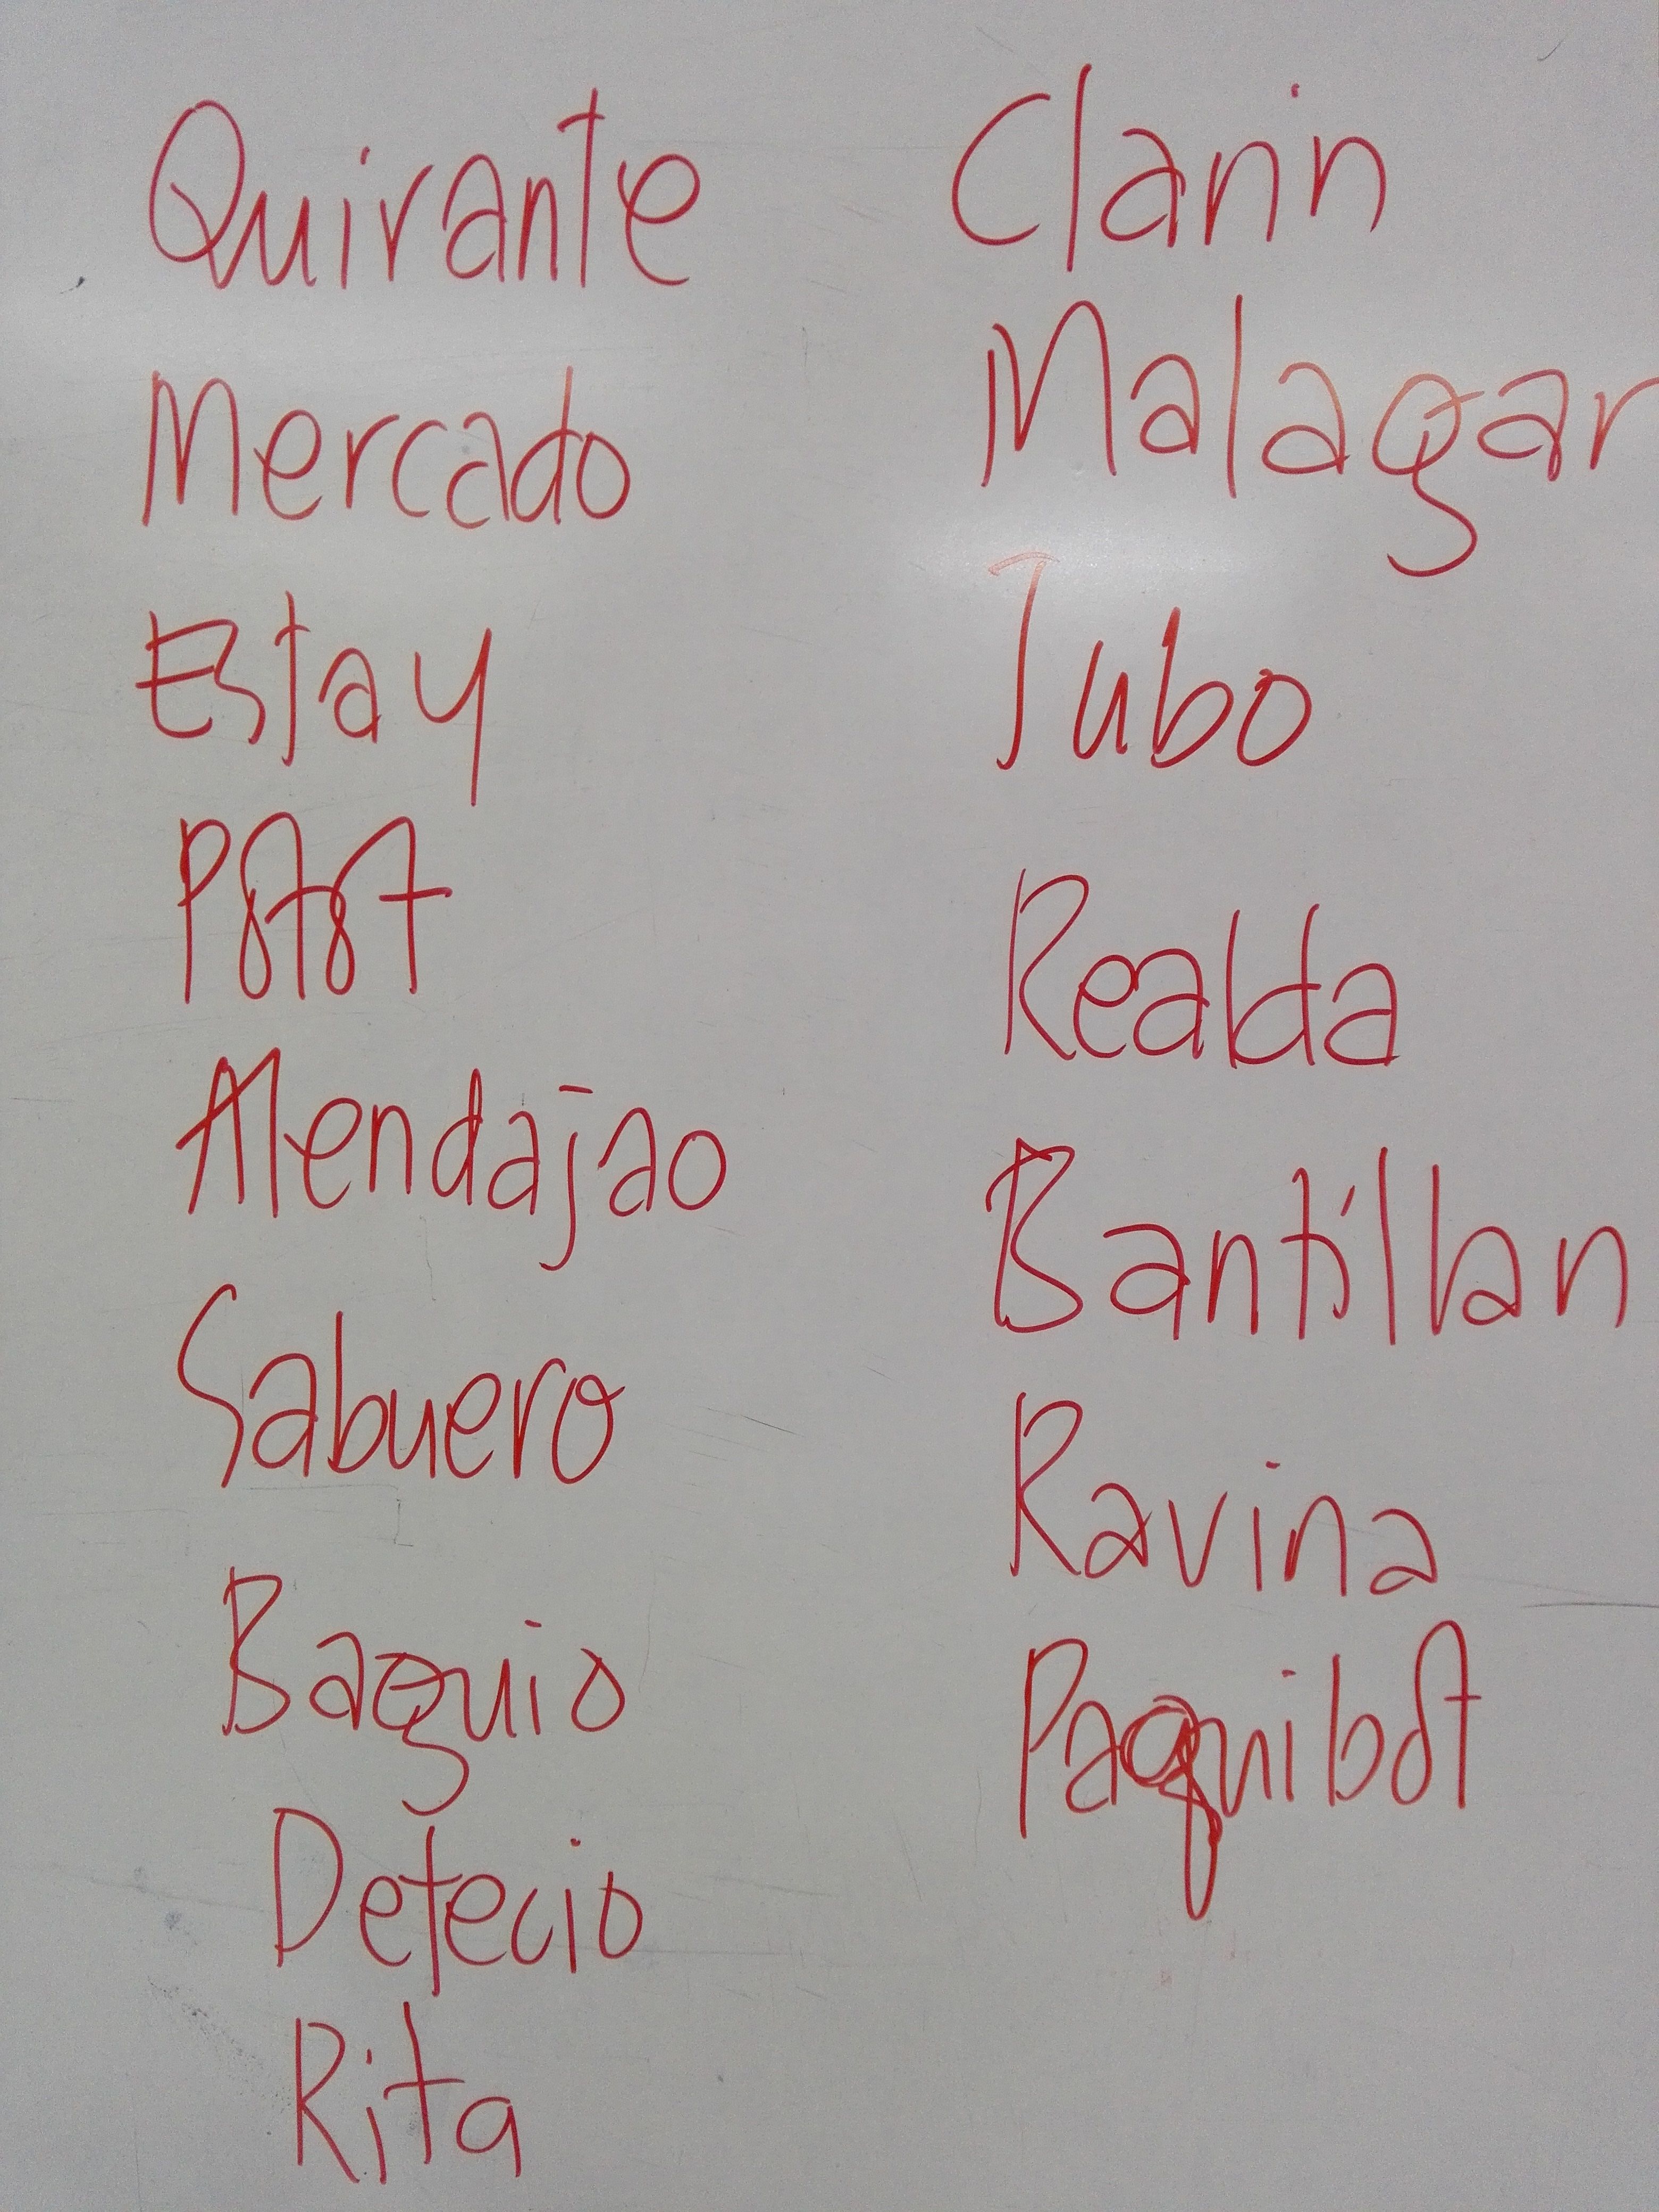 Quirante
Mercado
Estay
Potot
Alendajao
Sabuero
Baguio
Detecio
Rita
Clarin
Malagar
Jubo
Realda
Bantillan
Ravina
Paquibot